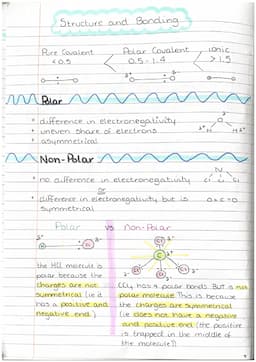 Structure and Bonding
Pure Covalent < Polar Covalent < ionic
< 0.5 0.5 - 1.4 > 1.5
Polar
difference in electronegativity
uneven share of electrons
asymmetrical
Non-Polar
no difference in electronegativity
or
difference in electronegativity but is
symmetrical
O=C=O
Polar vs Non-Polar
the HCl molecule is
polar because the
charges are not
symmetrical (ie it
has a positive and
negative end)
CCl4 has polar bonds. But is not
polar molecule. This is because
the charges are symmetrical
(ie does not have a negative
and positive end (the positive
is trapped in the middle of
the molecule))